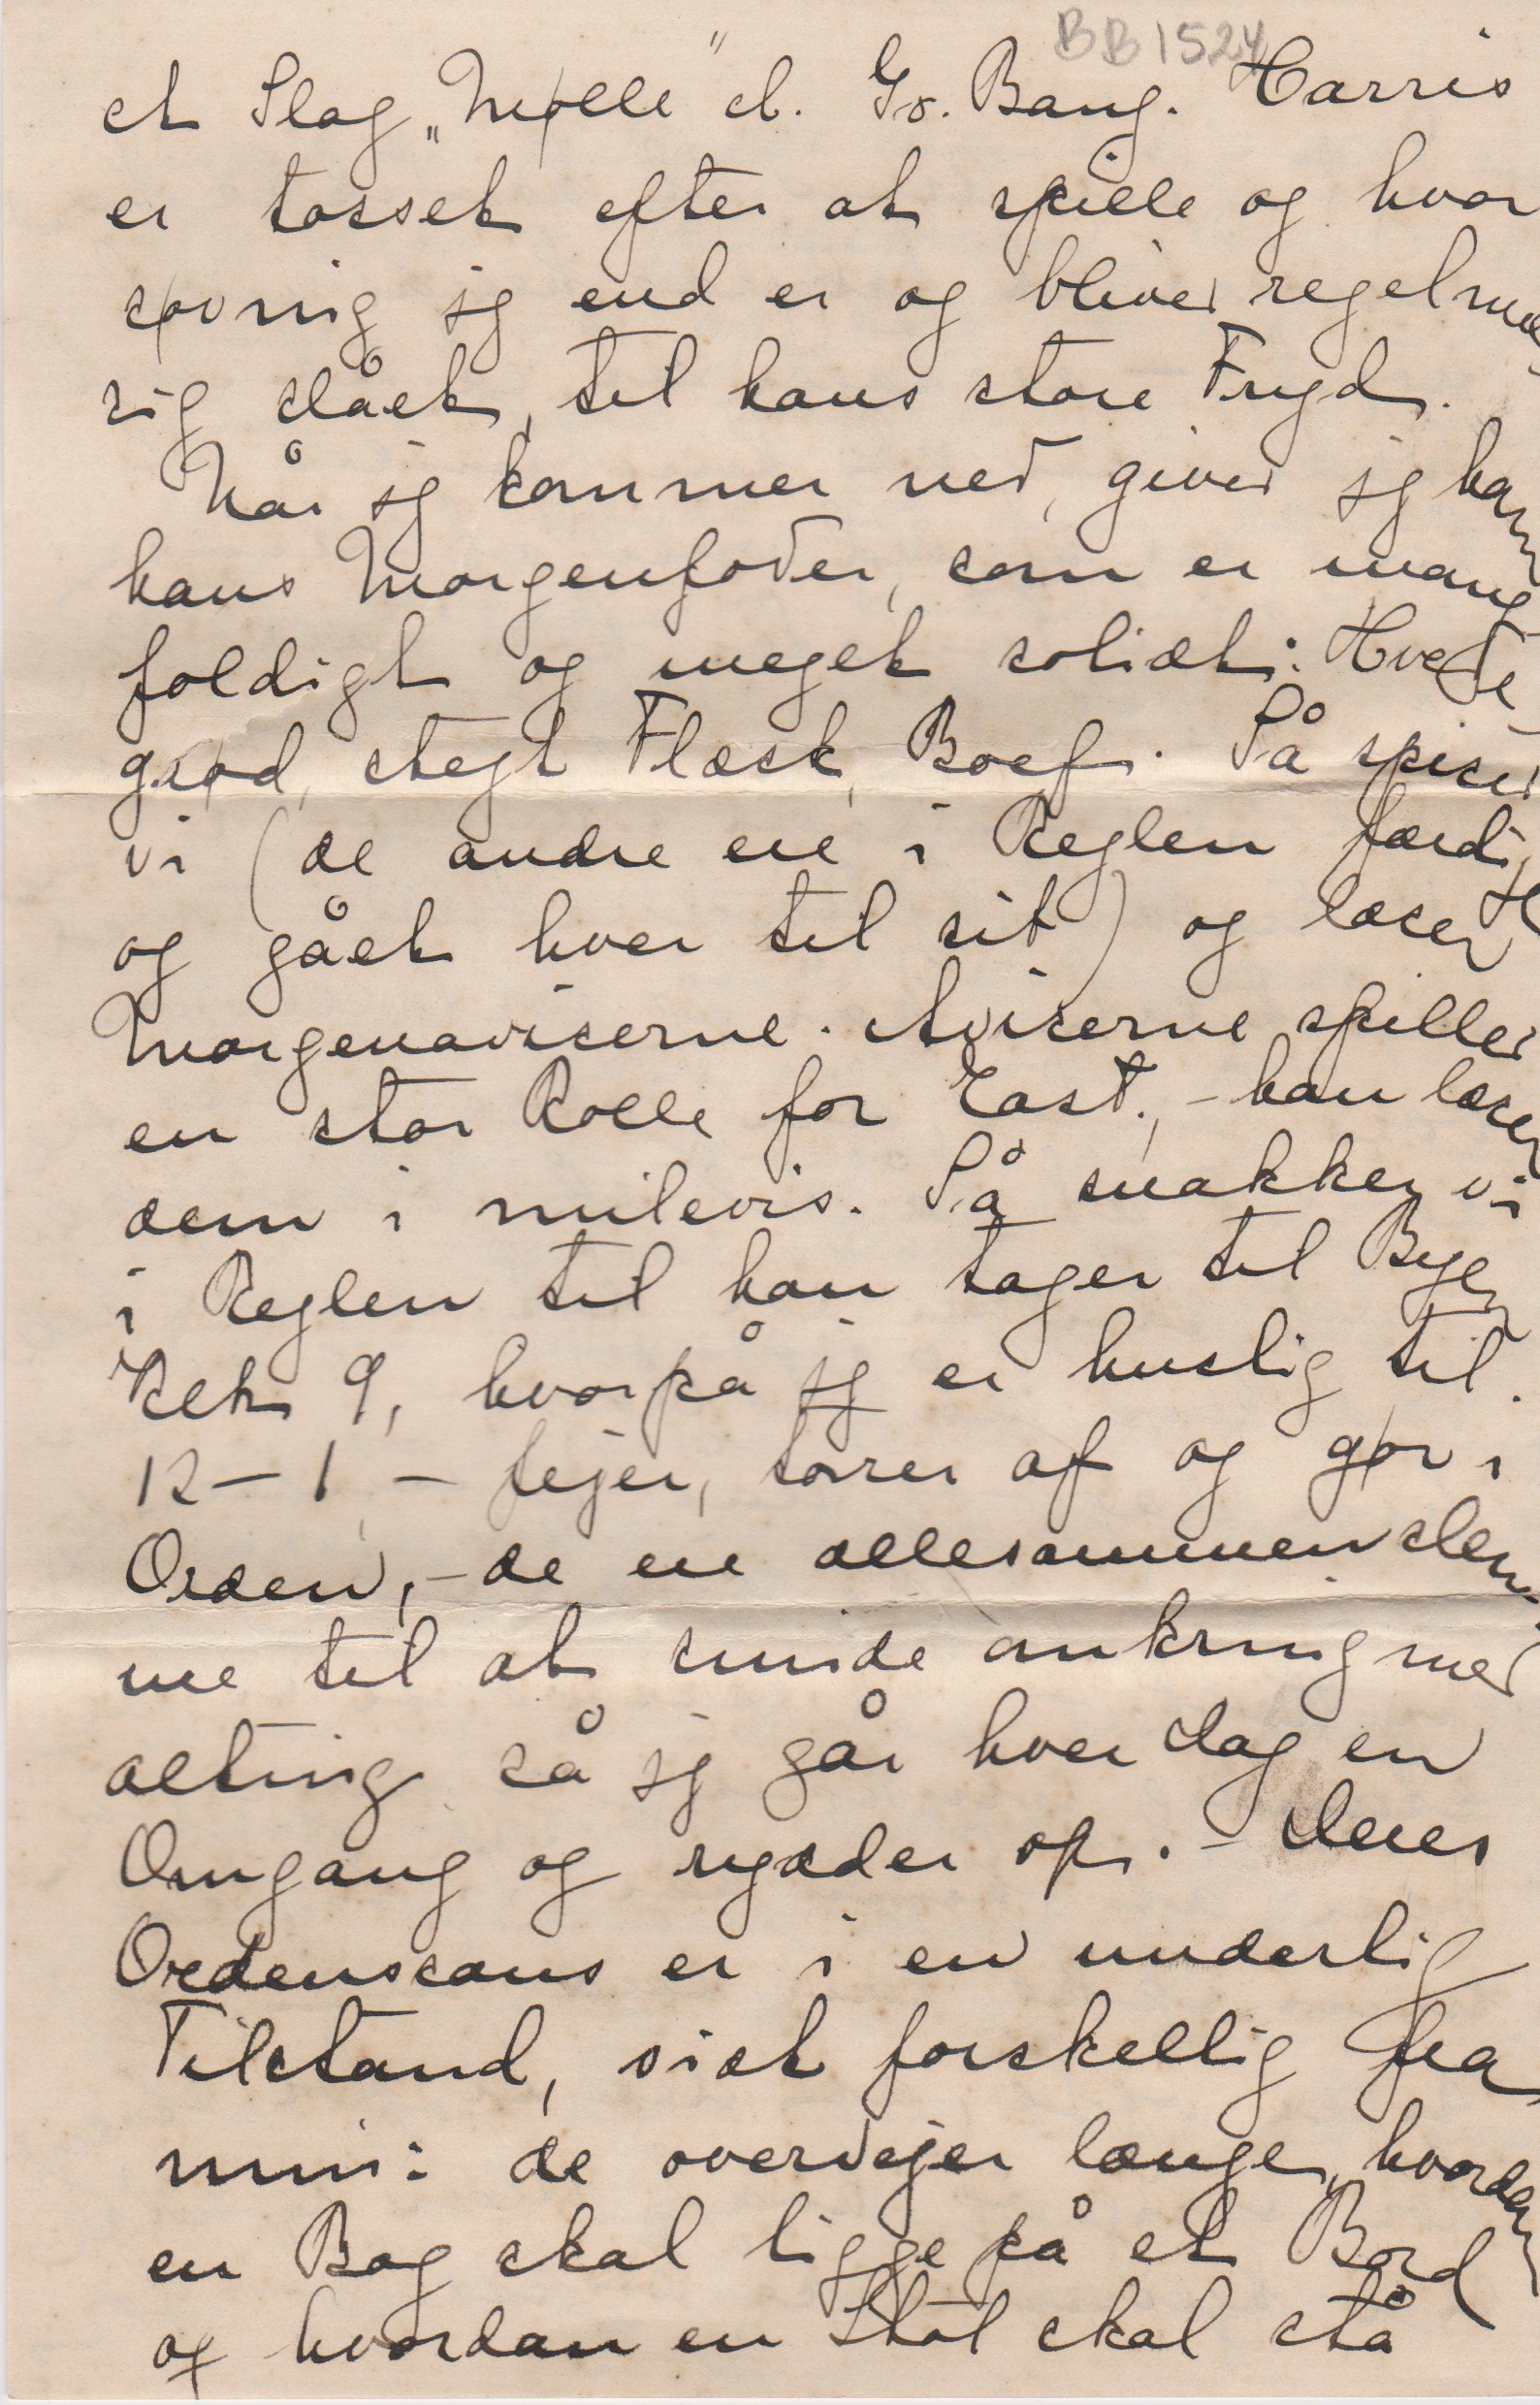 BB1524
et Slag „Mølle" el. Gr. Bang. Harris
er tosset efter at spille og hvor
søvnig jg end er og bliver regelmæs
sig slået, til hans store Fryd.
Når jg kommer ned, giver jg ham
hans Morgenfoder, som er mang
foldigt og meget solidt: Hvede
grød, stegt Flæsk, Boef. Så spiser
vi (de andre ere i Reglen færdi
og gået hver til sit) og læser
Morgenaviserne. Aviserne spiller
en stor Rolle for East., - han læser
dem i milevis. Så snakker vi
i Reglen til han tager til Byen
Kch 9, hvorpå jg er huslig til
12 - 1, - fejer, tørrer af og gør i
Orden, - de ere allesammen slem
me til at smide omkring med
alting så jg går hver Dag en
Omgang og rydder op. - Deres
Ordenssans er i en underlig
Tilstand, vist forskellig fra
min: de overvejer længe, hvordan
en Bog skal ligge på et Bord
og hvordan en Stol skal stå